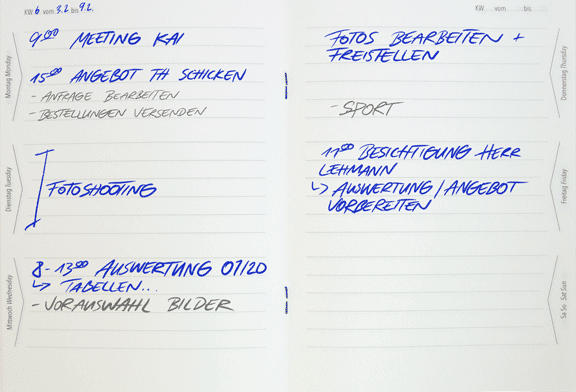 KW 6 vom 3.2. bis 9.2.
Montag Monday
9:00 MEETING KAI
15:00 ANGEBOT TH SCHICKEN
- ANFRAGE BEARBEITEN
- BESTELLUNGEN VERSENDEN
Dienstag Tuesday
FOTOSHOOTING
Mittwoch Wednesday
8-13:00 AUSWERTUNG 01/20
↳ TABELLEN...
- VORAUSWAHL BILDER
KW... vom ... bis ...
Donnerstag Thursday
FOTOS BEARBEITEN +
FREISTELLEN
- SPORT
Freitag Friday
11:00 BESICHTIGUNG HERR
LEHMANN
↳ AUSWERTUNG/ANGEBOT
VORBEREITEN
Sa So Sat Sun